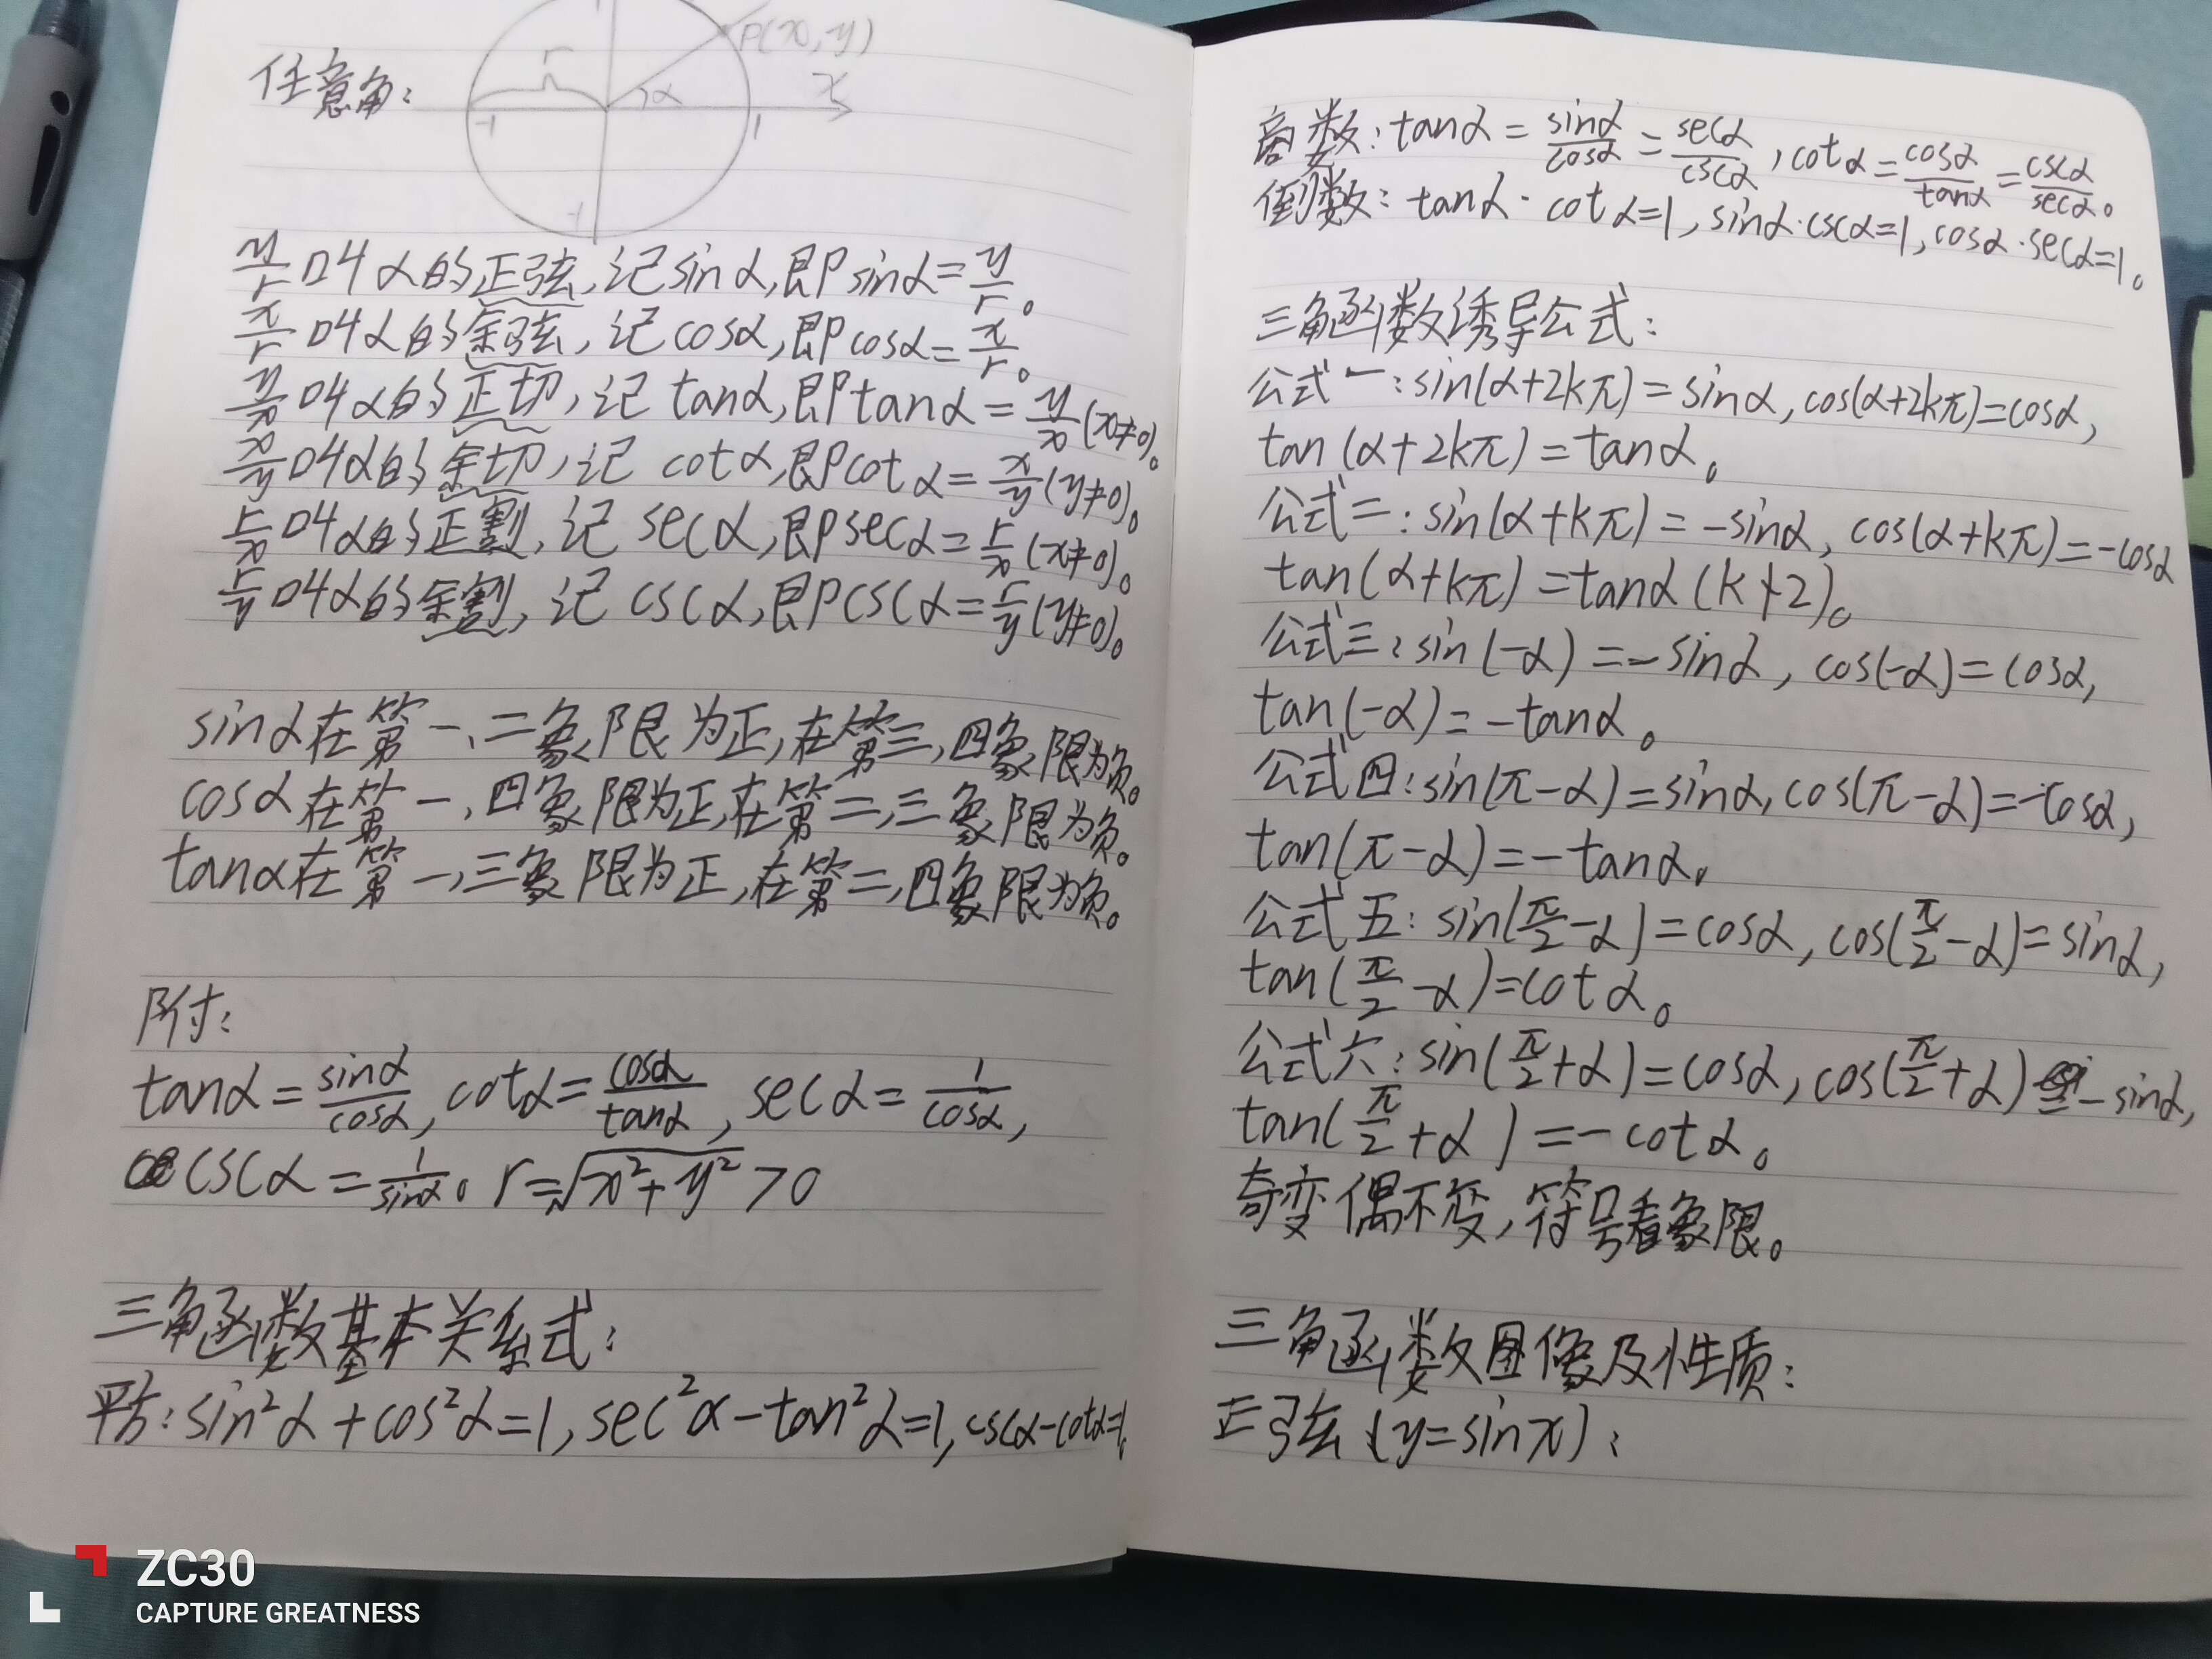 任意角:
P(x,y)
r
α
x
-1
1
1
-1
y/r叫α的正弦,记sinα,即sinα=y/r。
x/r叫α的余弦,记cosα,即cosα=x/r。
y/x叫α的正切,记tanα,即tanα=y/x(x≠0)。
x/y叫α的余切,记cotα,即cotα=x/y(y≠0)。
r/x叫α的正割,记secα,即secα=r/x(x≠0)。
r/y叫α的余割,记cscα,即cscα=r/y(y≠0)。
sinα在第一、二象限为正,在第三,四象限为负。
cosα在第一,四象限为正,在第二,三象限为负。
tanα在第一,三象限为正,在第二,四象限为负。
附:
tanα=sinα/cosα,cotα=cosα/tanα,secα=1/cosα,
cscα=1/sinα。r=√(x²+y²)>0
三角函数基本关系式:
平方:sin²α+cos²α=1,sec²α-tan²α=1,cscα-cotα=1。
商数:tanα=sinα/cosα=secα/cscα,cotα=cosα/tanα=cscα/secα。
倒数:tanα·cotα=1,sinα·cscα=1,cosα·secα=1。
三角函数诱导公式:
公式一:sin(α+2kπ)=sinα,cos(α+2kπ)=cosα,
tan(α+2kπ)=tanα。
公式二:sin(α+kπ)=-sinα,cos(α+kπ)=-cosα
tan(α+kπ)=tanα(k∤2)。
公式三:sin(-α)=-sinα,cos(-α)=cosα,
tan(-α)=-tanα。
公式四:sin(π-α)=sinα,cos(π-α)=-cosα,
tan(π-α)=-tanα。
公式五:sin(π/2-α)=cosα,cos(π/2-α)=sinα,
tan(π/2-α)=cotα。
公式六:sin(π/2+α)=cosα,cos(π/2+α)=-sinα,
tan(π/2+α)=-cotα。
奇变偶不变,符号看象限。
三角函数图像及性质:
正弦(y=sinx):
ZC30
CAPTURE GREATNESS